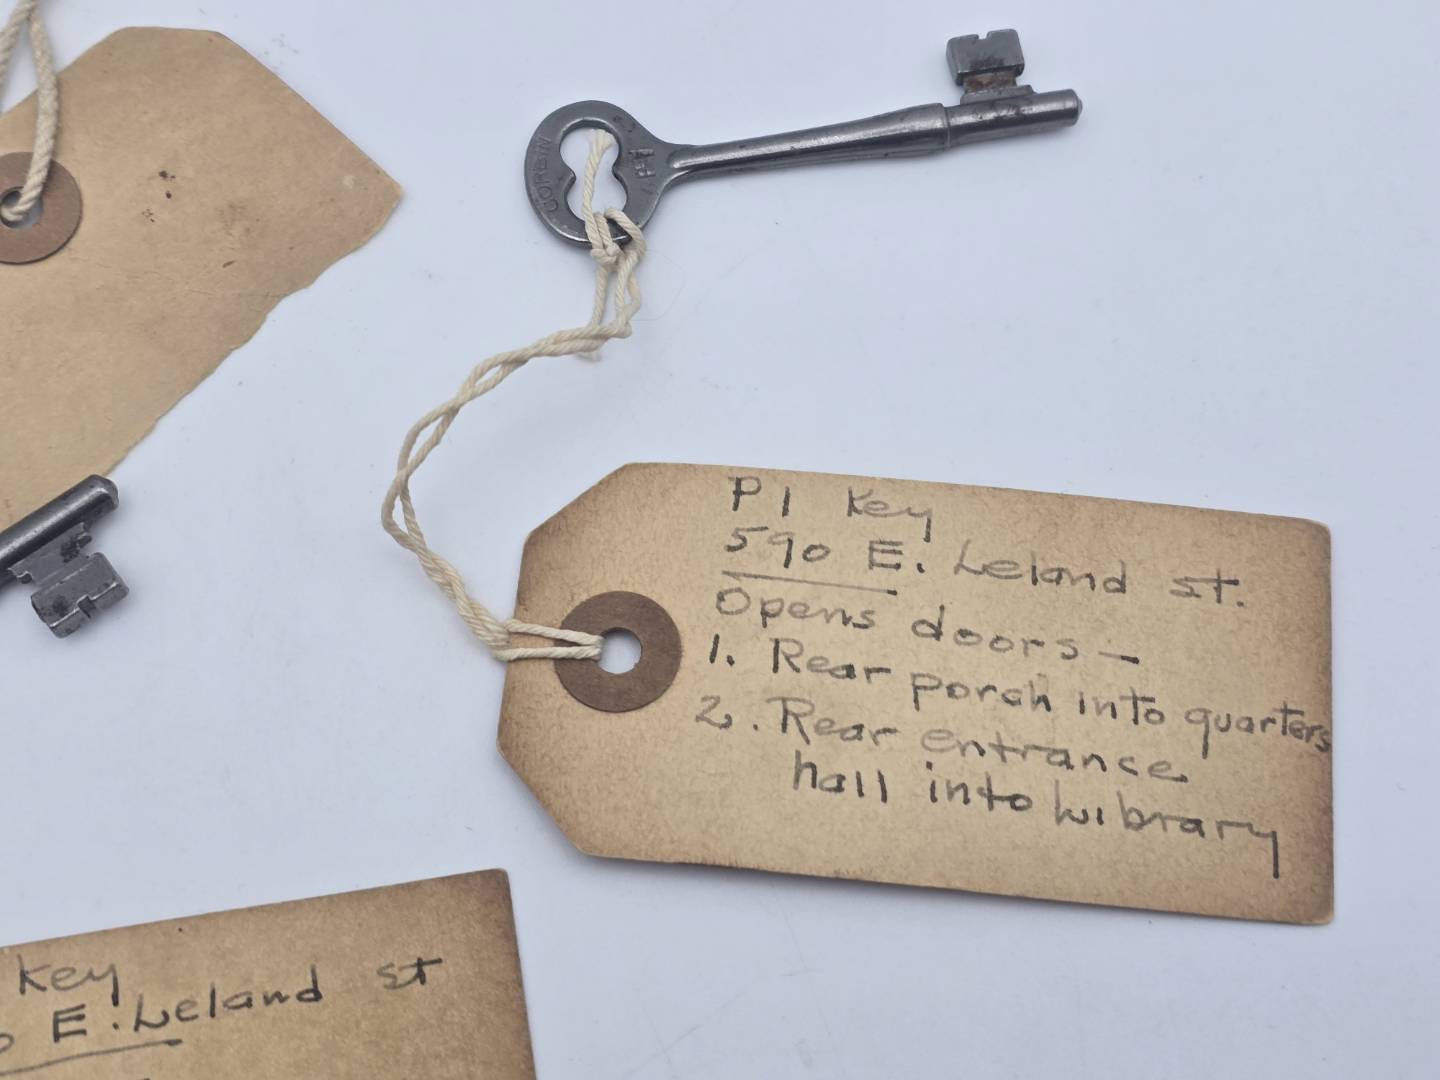 CORBIN
P1 Key
590 E. Leland St.
Opens doors—
1. Rear porch into quarters
2. Rear entrance
hall into Library
Key
E. Leland St